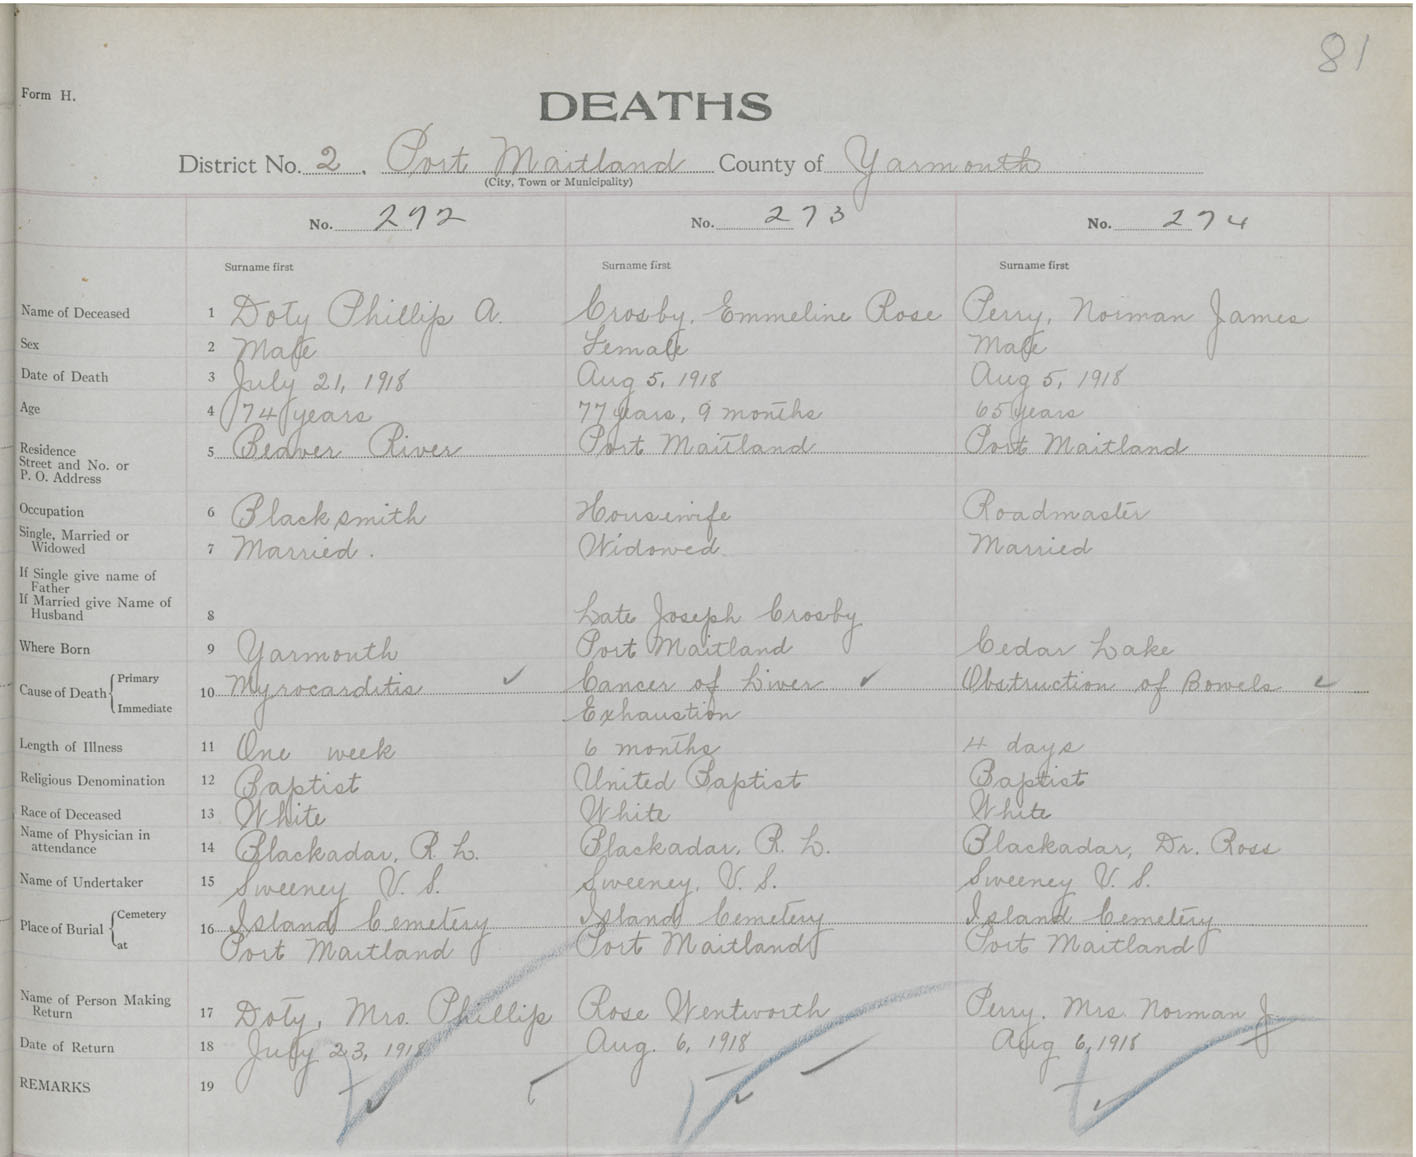 81
Form H.
DEATHS
District No. 2. Port Maitland County of Yarmouth
(City, Town or Municipality)
No. 272 No. 273 No. 274
Surname first Surname first Surname first
Name of Deceased 1 Doty Phillip A. Crosby, Emmeline Rose Perry, Norman James
Sex 2 Male Female Male
Date of Death 3 July 21, 1918 Aug 5, 1918 Aug 5, 1918
Age 4 74 years 77 years, 9 months 65 years
Residence
Street and No. or
P. O. Address 5 Beaver River Port Maitland Port Maitland
Occupation 6 Blacksmith Housewife Roadmaster
Single, Married or
Widowed 7 Married. Widowed Married
If Single give name of
Father
If Married give Name of
Husband 8 Late Joseph Crosby
Where Born 9 Yarmouth Port Maitland Cedar Lake
Cause of Death { Primary
Immediate 10 Myrocarditis Cancer of Liver Obstruction of Bowels
Exhaustion
Length of Illness 11 One week 6 months 4 days
Religious Denomination 12 Baptist United Baptist Baptist
Race of Deceased 13 White White White
Name of Physician in
attendance 14 Blackadar, R. L. Blackadar, R. L. Blackadar, Dr. Ross
Name of Undertaker 15 Sweeney V. S. Sweeney, V. S. Sweeney V. S.
Place of Burial { Cemetery
at 16 Island Cemetery Island Cemetery Island Cemetery
Port Maitland Port Maitland Port Maitland
Name of Person Making
Return 17 Doty, Mrs. Phillip Rose Wentworth Perry. Mrs. Norman J
Date of Return 18 July 23, 1918 Aug. 6, 1918 Aug 6, 1918
REMARKS 19